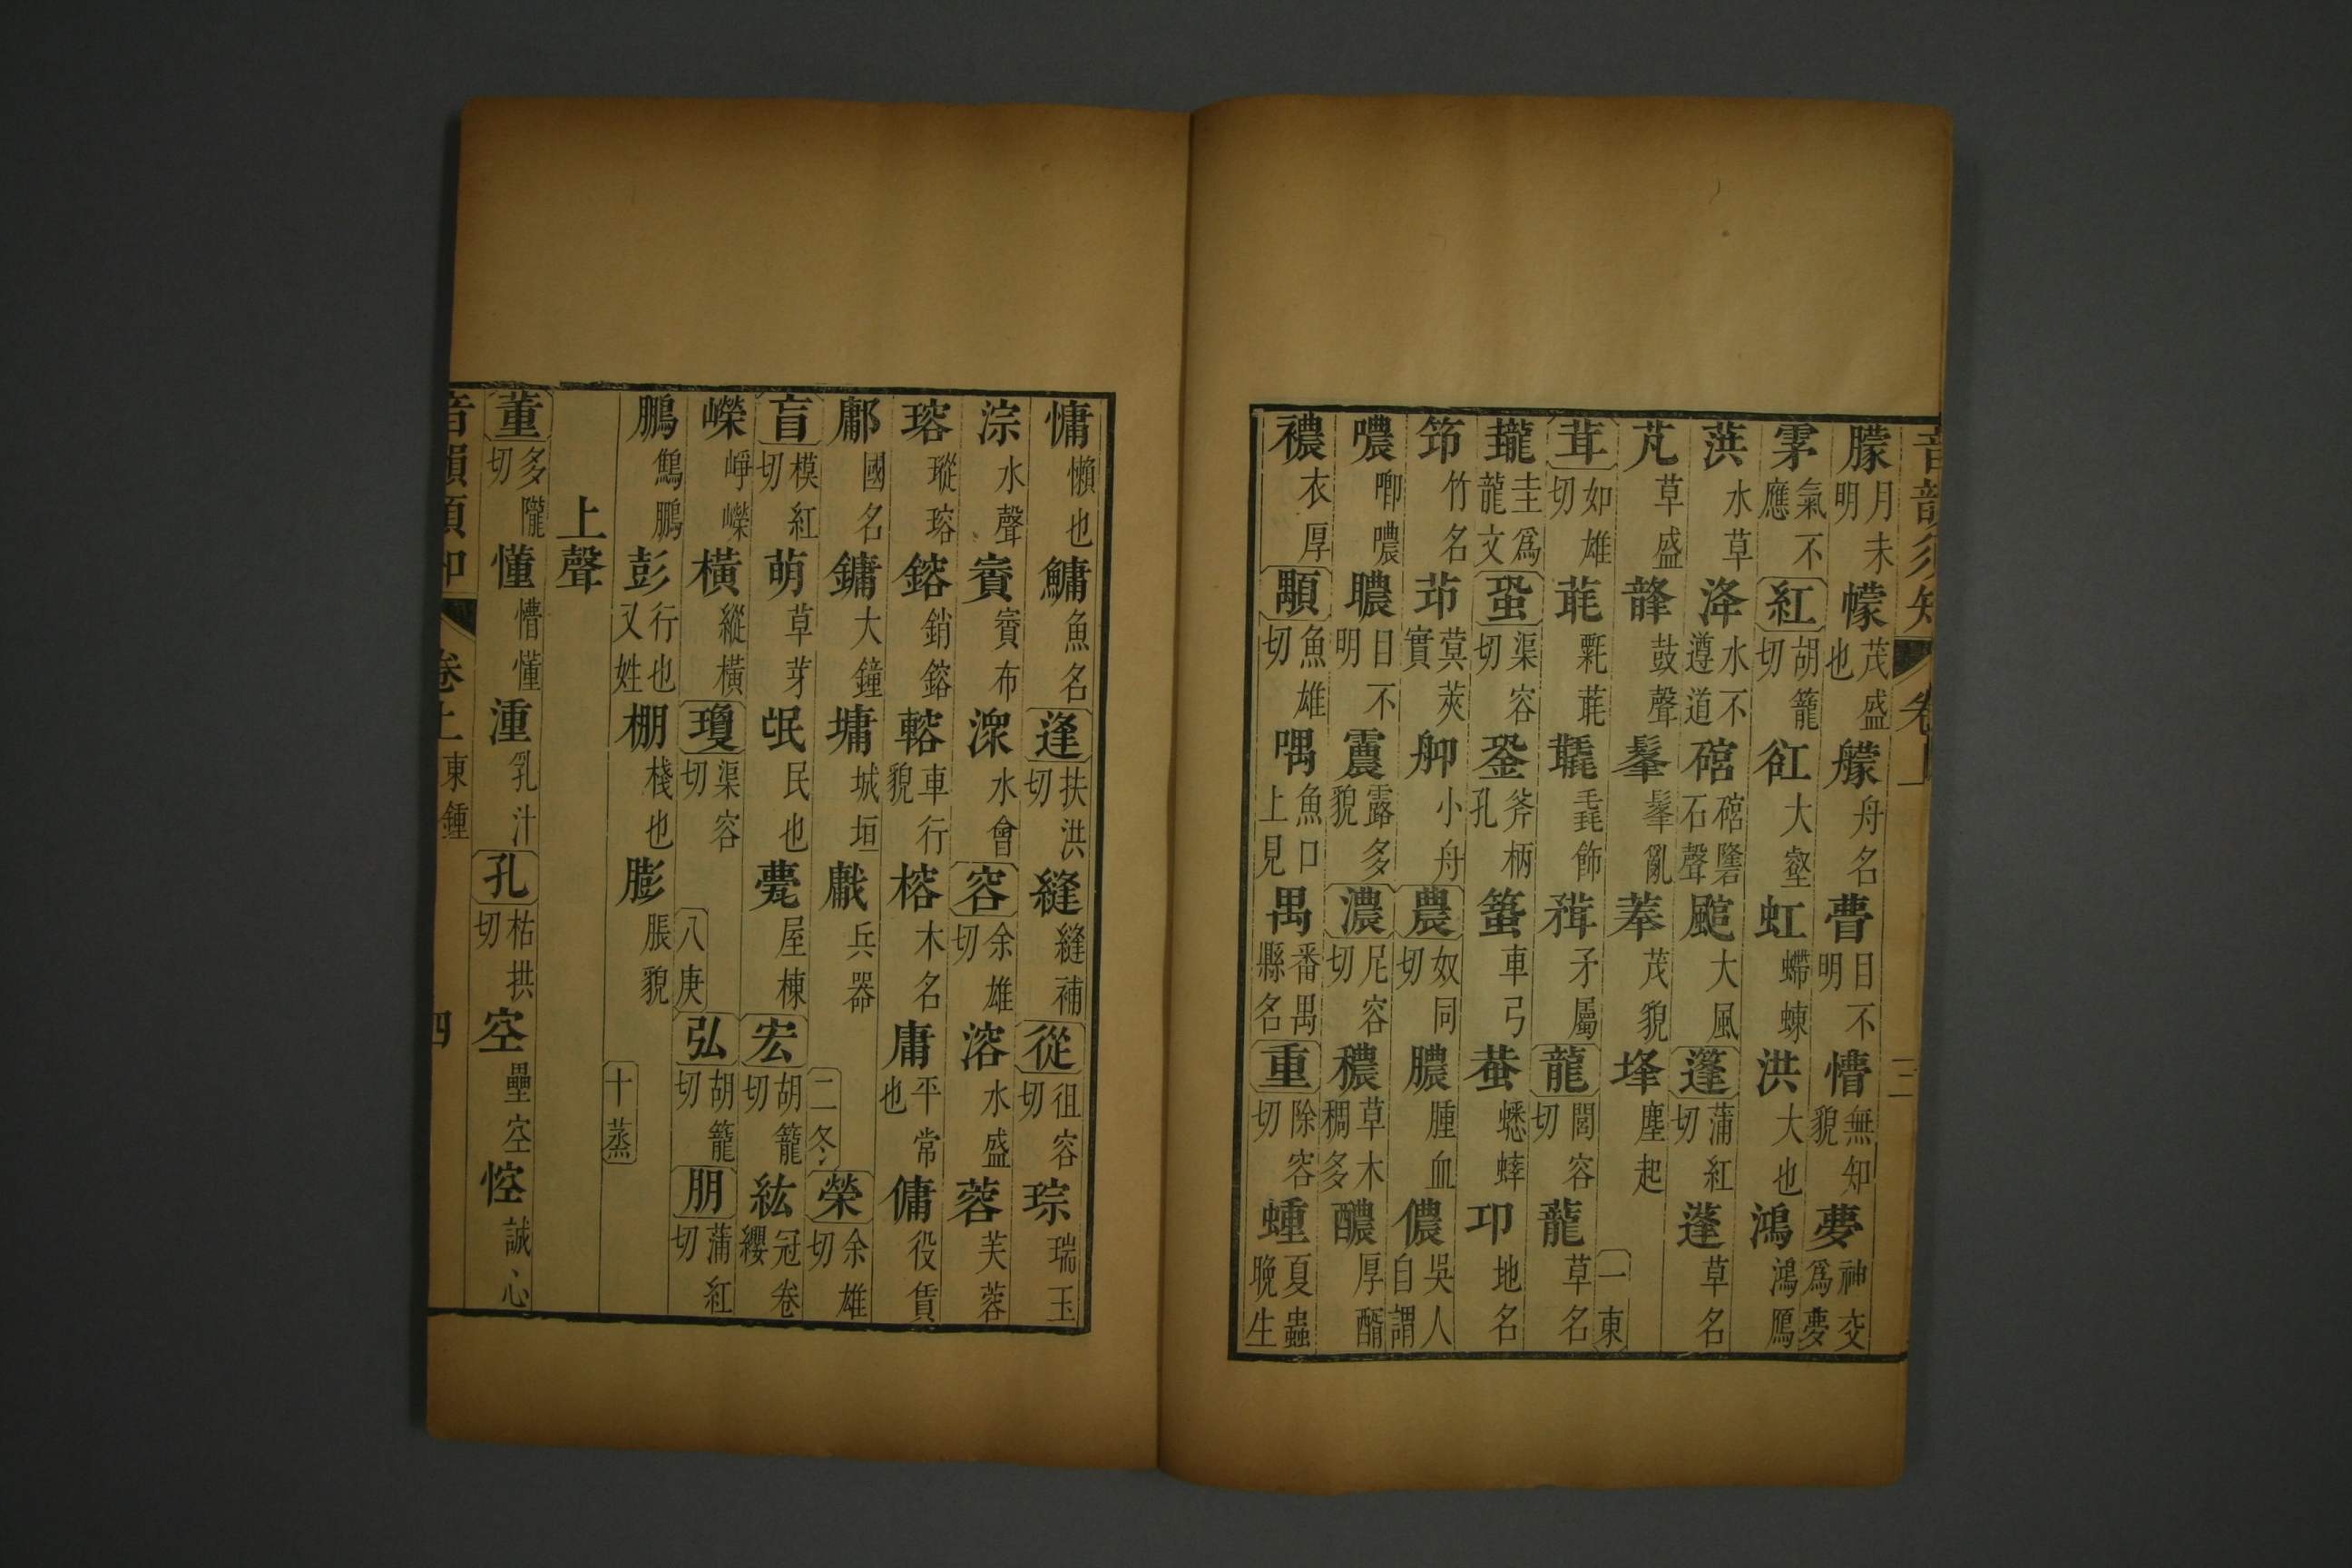 音韻須知 卷上 三
朦月未明 幪茂盛也 艨舟名 瞢日不明 懵無知貌 夢神交爲夢
雺氣不應 紅胡籠切 谾大壑 虹螮蝀 洪大也 鴻鴻鴈
葓水草 洚水不遵道 硿硿礱石聲 颰大風 篷蒲紅切 蓬草名
芃草盛 韸鼓聲 髼髼亂 莑茂貌 塳塵起 一東
茸如雄切 氃毛飾 矛屬 龍閭容切 蘢草名
瓏圭爲龍文 蛩渠容切 銎斧柄孔 車弓 蛬蟋蟀 邛地名
笻竹名 茚蓂莢實 小舟 農奴同切 膿腫血 儂吳人自謂
噥唧噥 日不明 震露多貌 濃尼容切 穠草木稠多 醲厚醑
襛衣厚 顒魚雄切 喁魚口上見 禺番禺縣名 重除容切 蝩夏蟲晚生
慵懶也 鱅魚名 逢扶洪切 縫縫補 從徂容切 琮瑞玉
淙水聲 賨賨布 潀水會 容余雄切 溶水盛 蓉芙蓉
瑢瑽瑢 鎔銷鎔 車行貌 榕木名 庸平常也 傭役賃
鄘國名 鏞大鐘 墉城垣 兵器 二冬 榮余雄切
盲模紅切 萌草芽 氓民也 甍屋棟 宏胡籠切 紘冠卷纓
嶸崢嶸 橫縱橫 瓊渠容切 八庚 弘胡籠切 朋蒲紅切
鵬鷦鵬 彭行也又姓 棚棧也 膨脹貌 十蒸
上聲
董多隴切 懂懵懂 湩乳汁 孔枯拱切 空壘空 悾誠心
音韻須知 卷上 東鍾 四